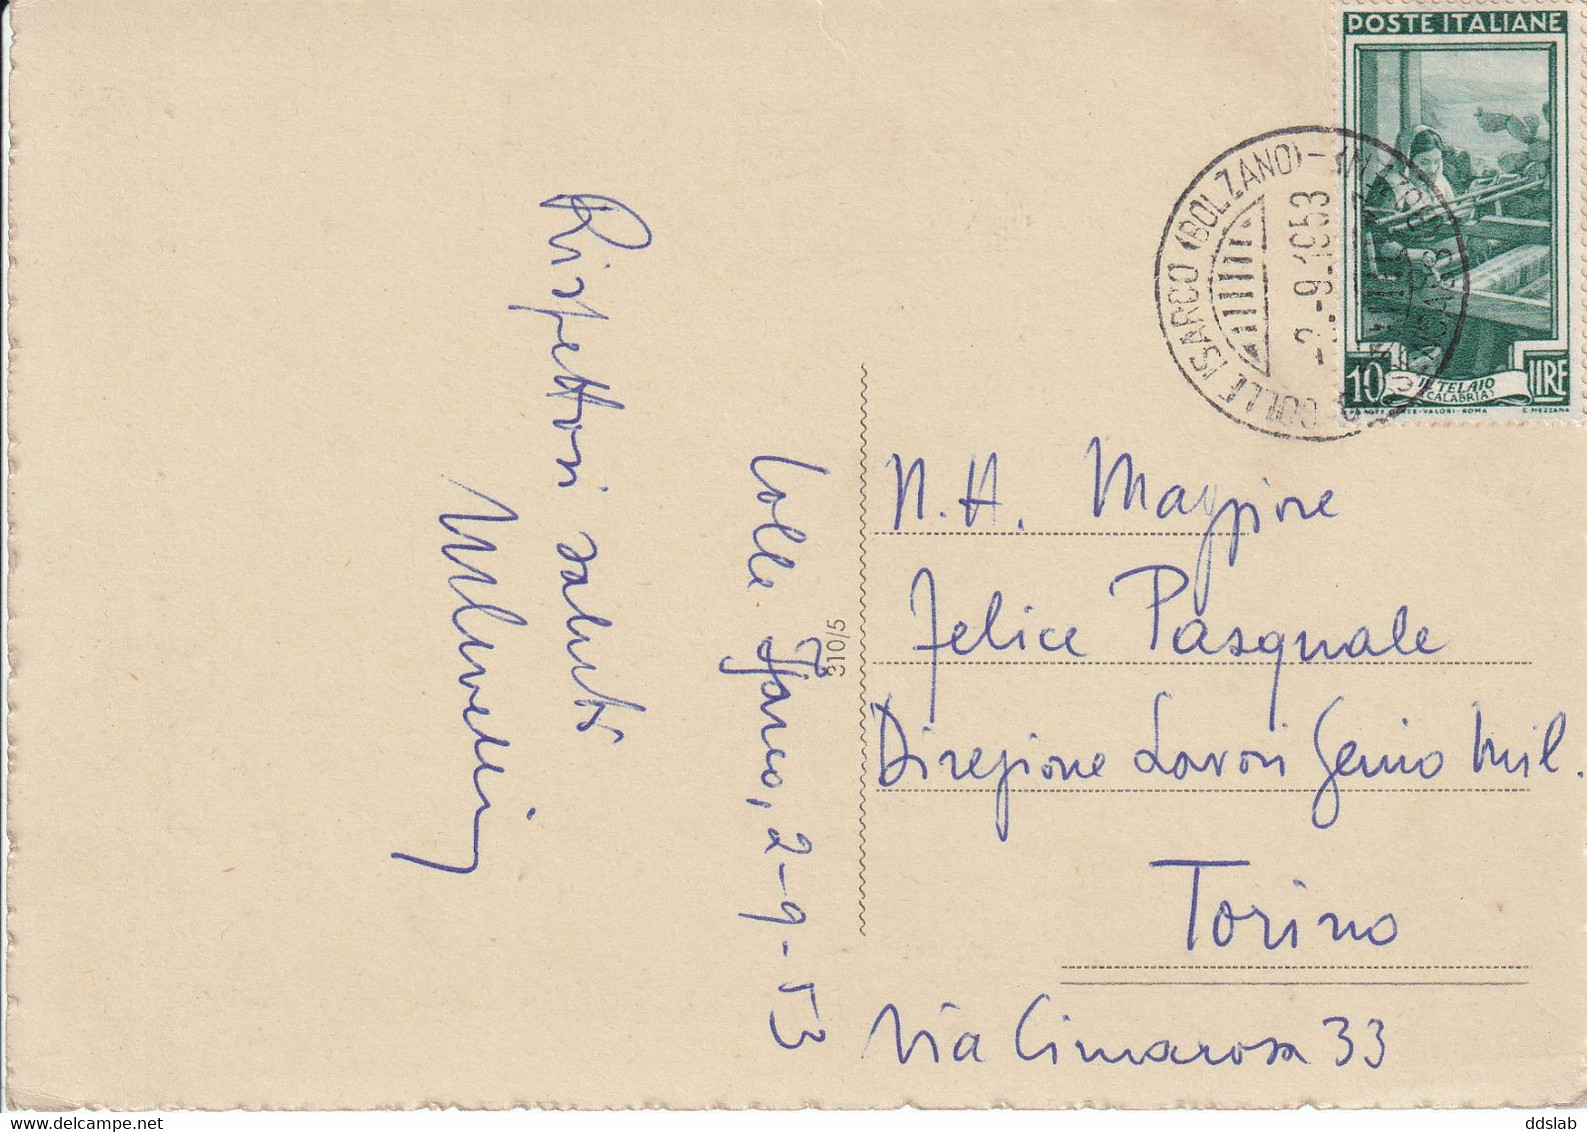 POSTE ITALIANE
10 LIRE
IL TELAIO
(CALABRIA)
COLLE ISARCO (BOLZANO)
2.-9.1953
Colle Isarco, 2-9-53
Rispettosi saluti
310/5
N.H. Maggiore
Felice Pasquale
Direzione Lavori Genio Mil.
Torino
Via Cimarosa 33
ddslab